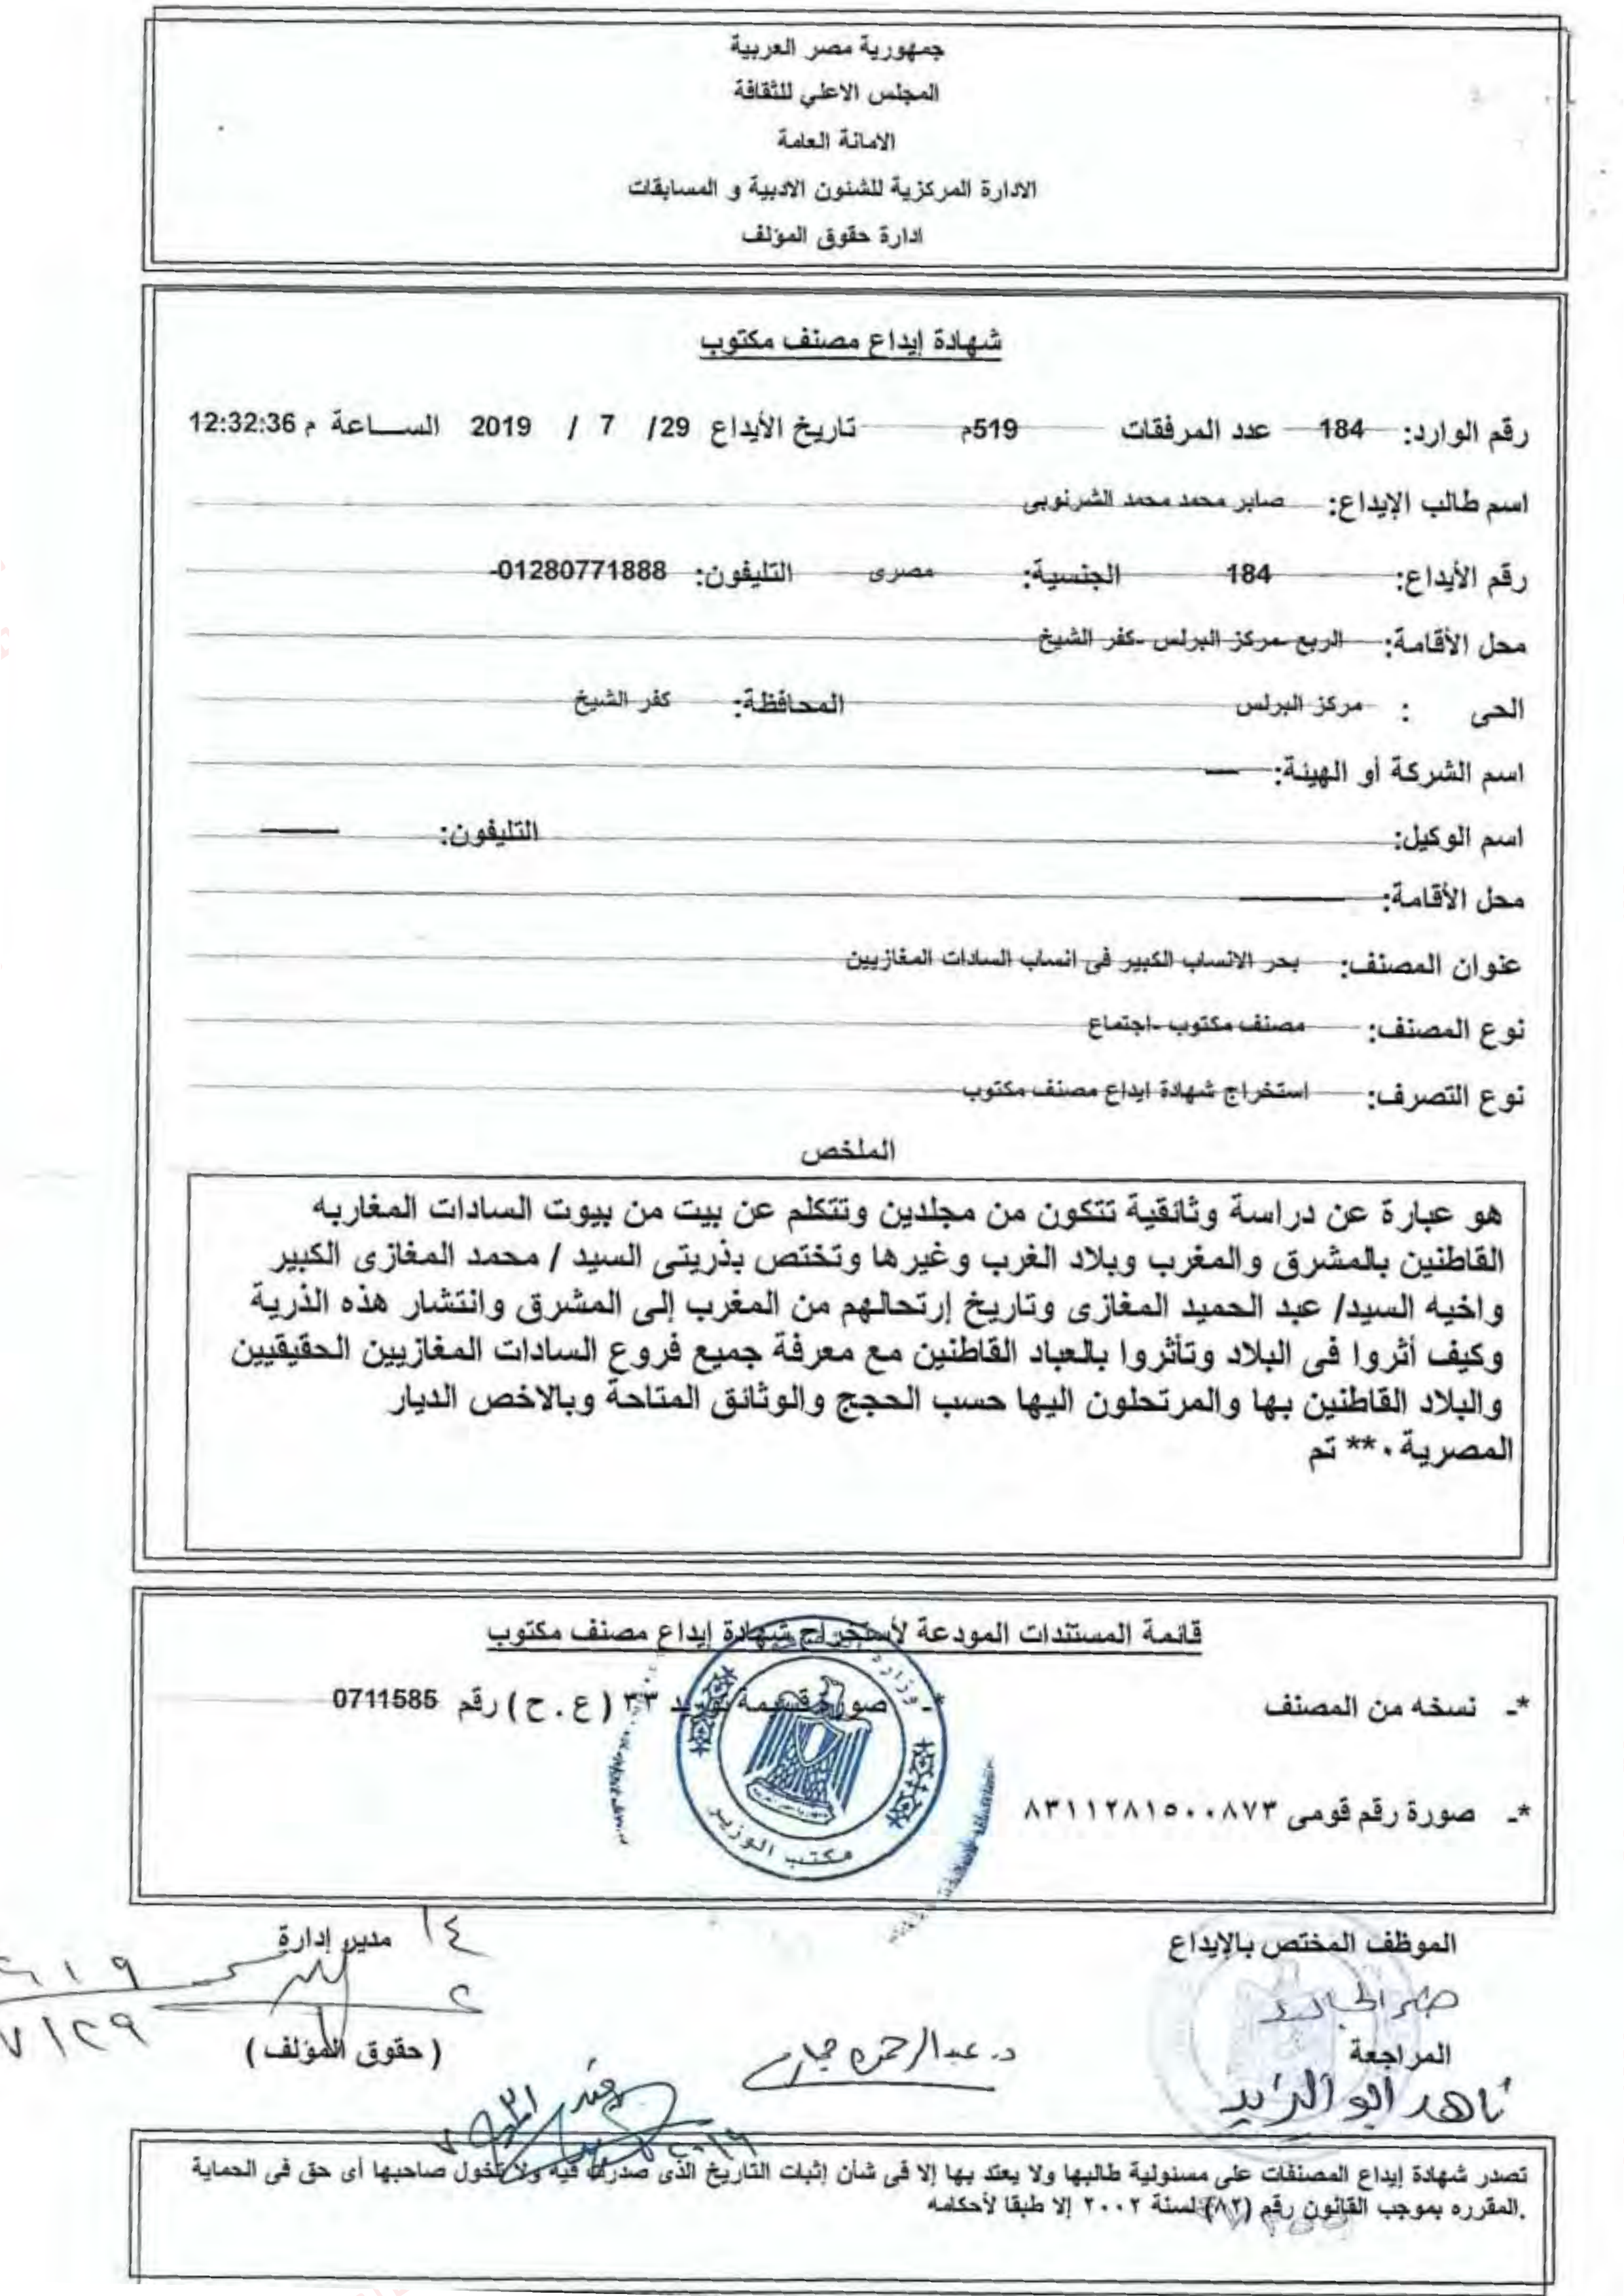 جمهورية مصر العربية
المجلس الاعلي للثقافة
الامانة العامة
الادارة المركزية للشئون الادبية و المسابقات
ادارة حقوق المؤلف
شهادة إيداع مصنف مكتوب
رقم الوارد: 184 عدد المرفقات 519م تاريخ الأيداع 29/ 7 / 2019 الساعة م 12:32:36
اسم طالب الإيداع: صابر محمد محمد الشرنوبى
رقم الأيداع: 184 الجنسية: مصرى التليفون: 01280771888-
محل الأقامة: الربع -مركز البرلس -كفر الشيخ
الحى : مركز البرلس المحافظة: كفر الشيخ
اسم الشركة أو الهيئة:
اسم الوكيل: التليفون:
محل الأقامة:
عنوان المصنف: بحر الانساب الكبير فى انساب السادات المغازيين
نوع المصنف: مصنف مكتوب -اجتماع
نوع التصرف: استخراج شهادة ايداع مصنف مكتوب
الملخص
هو عبارة عن دراسة وثائقية تتكون من مجلدين وتتكلم عن بيت من بيوت السادات المغاربه
القاطنين بالمشرق والمغرب وبلاد الغرب وغيرها وتختص بذريتى السيد / محمد المغازى الكبير
واخيه السيد/ عبد الحميد المغازى وتاريخ إرتحالهم من المغرب إلى المشرق وانتشار هذه الذرية
وكيف أثروا فى البلاد وتأثروا بالعباد القاطنين مع معرفة جميع فروع السادات المغازيين الحقيقيين
والبلاد القاطنين بها والمرتحلون اليها حسب الحجج والوثائق المتاحة وبالاخص الديار
المصرية . ** تم
قائمة المستندات المودعة لأستخراج شهادة إيداع مصنف مكتوب
*- نسخه من المصنف *- صورة قسيمة توريد ٣٣ ( ع . ح ) رقم 0711585
*- صورة رقم قومى ٨٣١١٢٨١٥٠٠٨٧٣
وزارة
مكتب الوزير
الموظف المختص بالإيداع
مدير إدارة
المراجعة
( حقوق المؤلف )
د. عبدالرحمن
ناهد ابو اليزيد
تصدر شهادة إيداع المصنفات على مسئولية طالبها ولا يعتد بها إلا فى شأن إثبات التاريخ الذى صدرت فيه ولا تخول صاحبها أى حق فى الحماية
.المقرره بموجب القانون رقم (٨٢) لسنة ٢٠٠٢ إلا طبقا لأحكامه